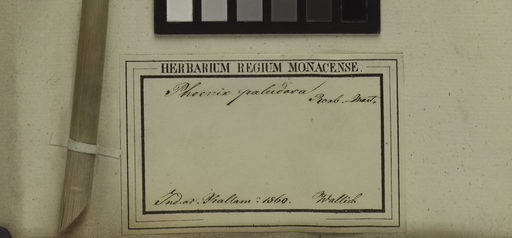 HERBARIUM REGIUM MONACENSE.
Phoenix paludosa
Roxb. Mart.
Ind. or. 1860. Wallich